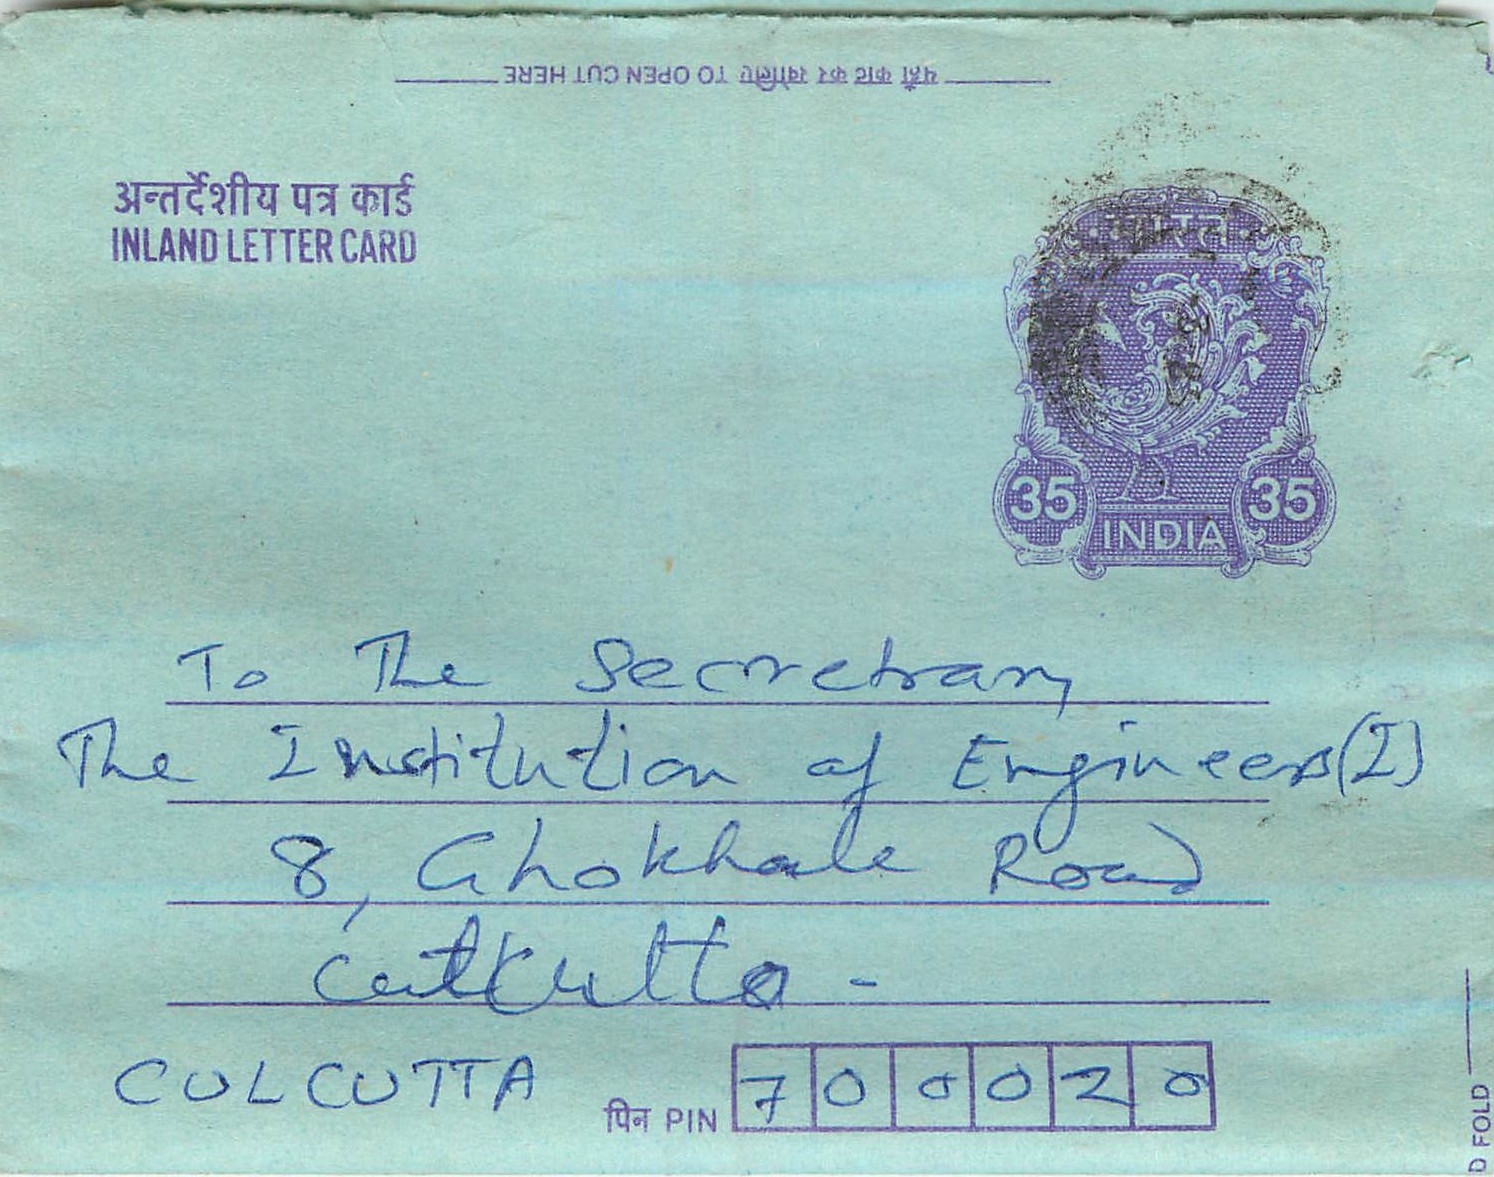 यहाँ काट कर खोलिए TO OPEN CUT HERE
अन्तर्देशीय पत्र कार्ड
INLAND LETTER CARD
भारत
35 INDIA 35
To The Secretary
The Institution of Engineers (I)
8, Ghokhale Road
Calcutta -
CULCUTTA
पिन PIN 700020
D FOLD